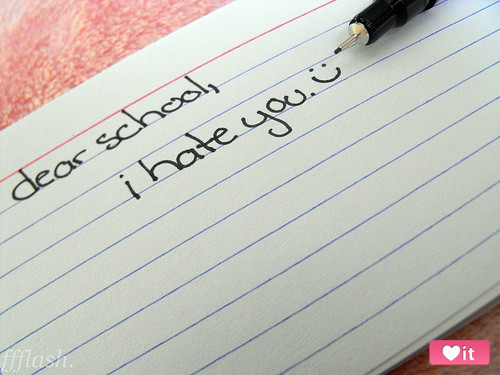 dear school,
i hate you. :)
it
ffflash.